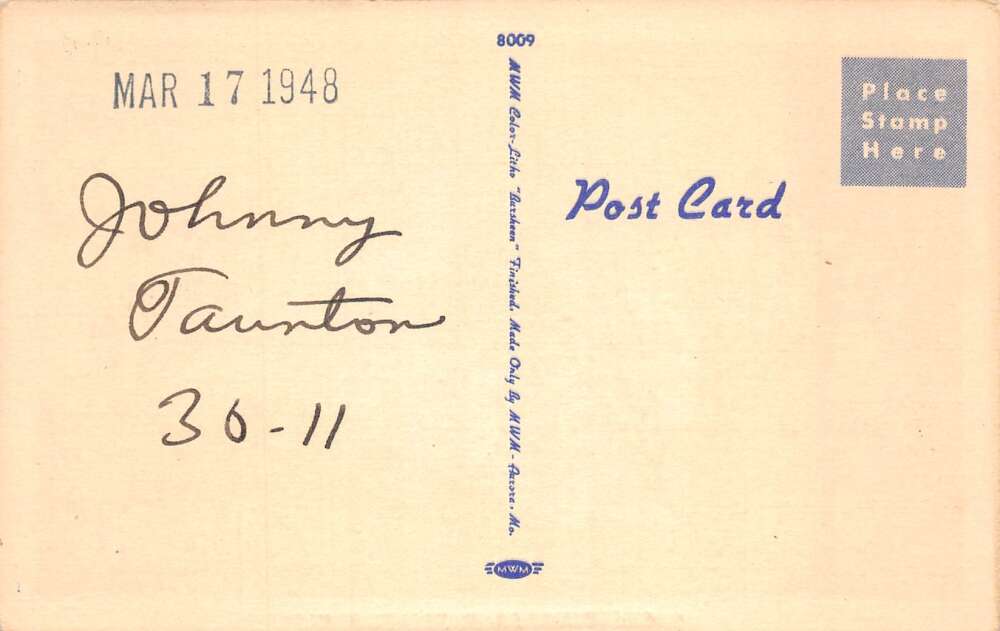 8009
MAR 17 1948
Place
Stamp
Here
Johnny
Taunton
30-11
Post Card
MWM Color-Litho "Dursheen" Finished. Made Only By MWM - Aurora, Mo.
MWM